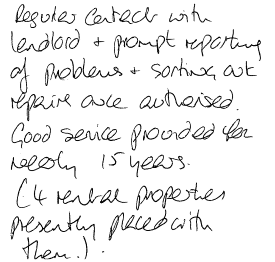 Regular Contact with
landlord + prompt reporting
of problems + sorting out
repairs once authorised.
Good service provided for
nearly 15 years.
(4 rental properties
presently placed with
them.).